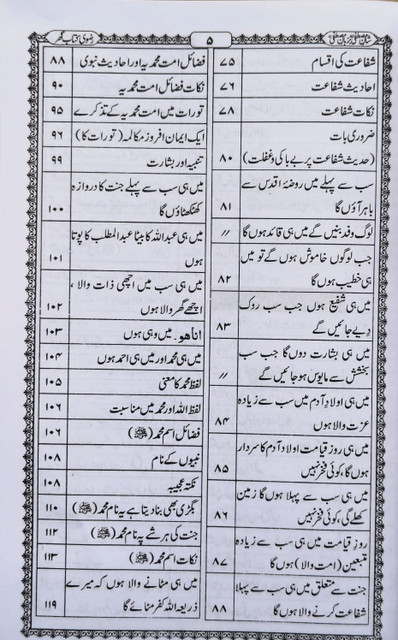 شان مصطفیٰ بزبان مصطفیٰ
۵
رضوی کتاب گھر
شفاعت کی اقسام ۷۵
احادیث شفاعت ۷۶
نکات شفاعت ۷۸
ضروری بات
(حدیث شفاعت پر بے باکی و غفلت) ۸۰
سب سے پہلے میں روضۂ اقدس سے
باہر آؤں گا ۸۱
لوگ وفد بنیں گے میں ہی قائد ہوں گا //
جب لوگوں خاموش ہوں گے تو میں
ہی خطیب ہوں گا ۸۲
میں ہی شفیع ہوں جب سب روک
دیے جائیں گے ۸۳
میں ہی بشارت دوں گا جب سب
بخشش سے مایوس ہو جائیں گے //
میں ہی اولاد آدم میں سب سے زیادہ
عزت والا ہوں ۸۴
میں ہی روز قیامت اولاد آدم کا سردار
ہوں گا، کوئی فخر نہیں ۸۵
میں ہی سب سے پہلا ہوں گا زمین
کھلے گی، کوئی فخر نہیں ۸۶
روز قیامت میں ہی سب سے زیادہ
متبعین (امت والا) ہوں گا ۸۷
جنت سے متعلق میں ہی سب سے پہلا
شفاعت کرنے والا ہوں گا ۸۸
فضائل امت محمدیہ اور احادیث نبوی ۸۸
نکات فضائل امت محمدیہ ۹۰
تورات میں امت محمدیہ کے تذکرے ۹۵
ایک ایمان افروز مکالمہ (تورات کا) ۹۶
تنبیہ اور بشارت ۹۹
میں ہی سب سے پہلے جنت کا دروازہ
کھٹکھٹاؤں گا ۱۰۰
میں ہی عبداللہ کا بیٹا عبدالمطلب کا پوتا
ہوں ۱۰۱
میں ہی سب میں اچھی ذات والا،
اچھے گھر والا ہوں ۱۰۲
اناھو۔ میں وہی ہوں ۱۰۳
میں ہی محمد اور میں ہی احمد ہوں ۱۰۴
لفظ محمد کا معنیٰ ۱۰۵
لفظ اللہ اور محمد میں مناسبت ۱۰۶
فضائل اسم محمد (ﷺ) ۱۰۶
نبیوں کے نام ۱۰۸
نکتہ عجیبہ ۱۰۸
بگڑی بھی بنا دیتا ہے یہ نام محمد (ﷺ) ۱۱۰
جنت کی ہر شے پہ نام محمد (ﷺ) ۱۱۲
نکات اسم محمد (ﷺ) ۱۱۳
میں ہی مٹانے والا ہوں کہ میرے
ذریعہ اللہ کفر مٹائے گا ۱۱۹